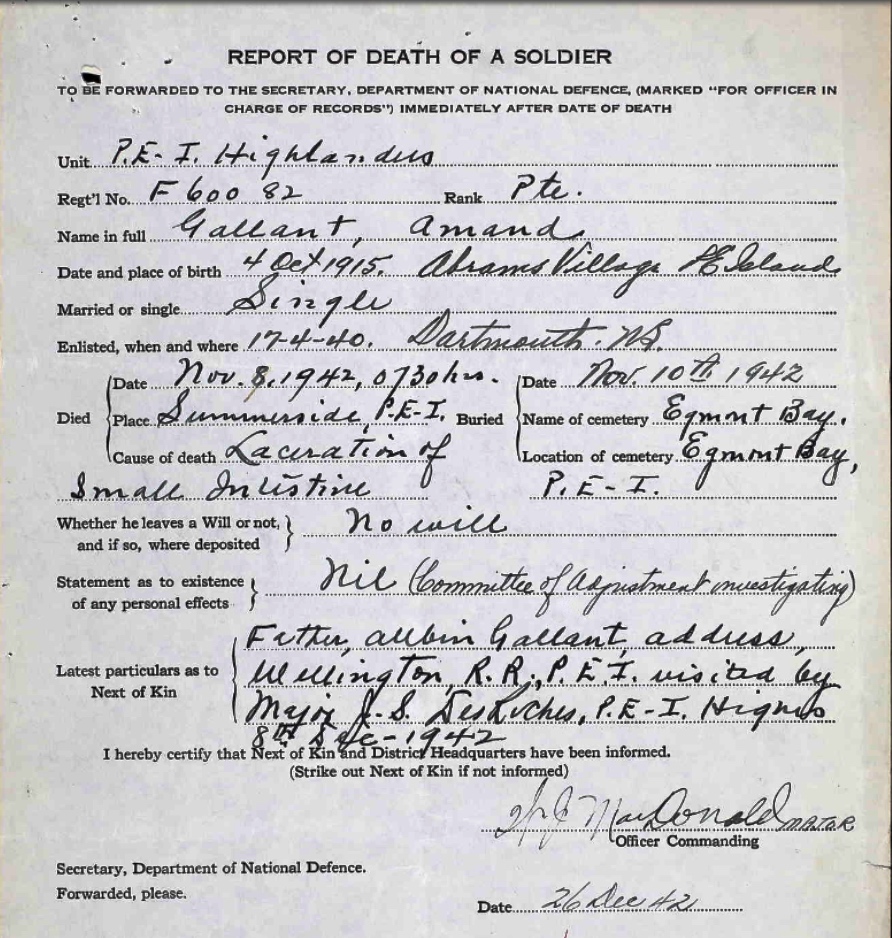 REPORT OF DEATH OF A SOLDIER
TO BE FORWARDED TO THE SECRETARY, DEPARTMENT OF NATIONAL DEFENCE, (MARKED "FOR OFFICER IN
CHARGE OF RECORDS") IMMEDIATELY AFTER DATE OF DEATH
Unit P.E-I. Highlanders
Regt'l No. F 600 82 Rank Pte.
Name in full Gallant, Amand
Date and place of birth 4 Oct 1915. Abrams Village P E Island
Married or single Single
Enlisted, when and where 17-4-40. Dartmouth. N.S.
Died
Date Nov. 8, 1942, 0730 hrs.
Place Summerside, P.E-I.
Cause of death Laceration of
Small Intestine
Buried
Date Nov. 10th 1942
Name of cemetery Egmont Bay.
Location of cemetery Egmont Bay,
P.E-I.
Whether he leaves a Will or not,
and if so, where deposited } No will
Statement as to existence
of any personal effects } Nil (Committee of Adjustment investigating)
Latest particulars as to
Next of Kin
Father, Albin Gallant, address,
Wellington, R.R., P.E.I. visited by
Major J.S. DesRoches, P.E-I. Highrs
8th Dec-1942
I hereby certify that Next of Kin and District Headquarters have been informed.
(Strike out Next of Kin if not informed)
MacDonald MAJOR
Officer Commanding
Secretary, Department of National Defence.
Forwarded, please.
Date 26 Dec 42